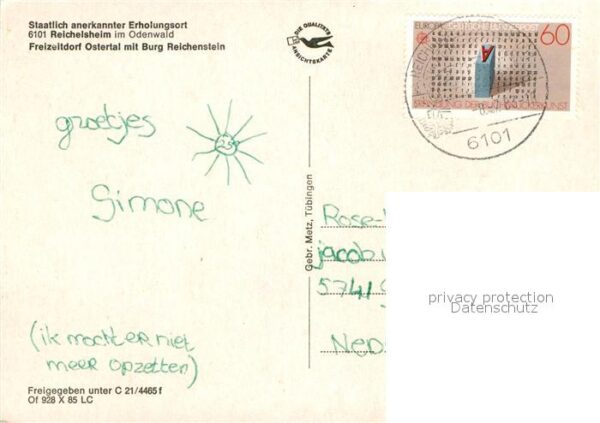 Staatlich anerkannter Erholungsort
6101 Reichelsheim im Odenwald
Freizeitdorf Ostertal mit Burg Reichenstein
DIE QUALITÄTS
ANSICHTSKARTE
EUROPA
60
ERFINDUNG DER BUCHDRUCKERKUNST
6101
groetjes
25
Simone
(ik mocht er niet
meer opzetten)
Gebr. Metz, Tübingen
Rose-
jacob
5741
Ned
privacy protection
Datenschutz
Freigegeben unter C 21/4465 f
Of 928 X 85 LC